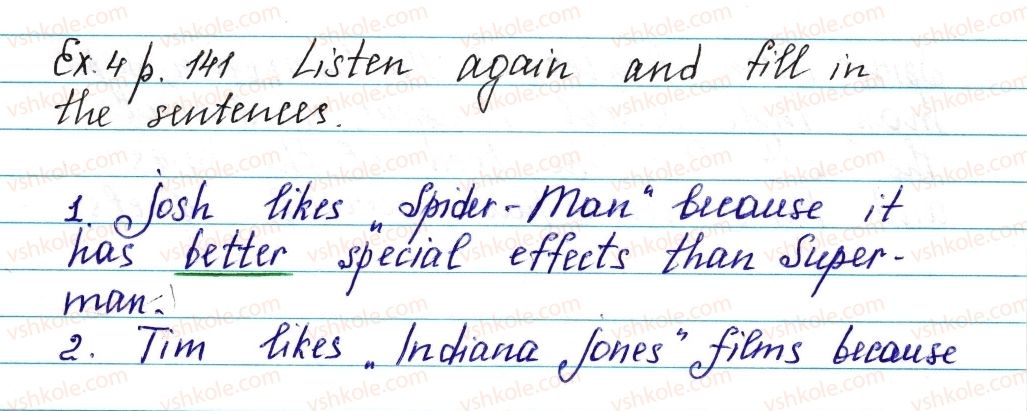 Ex. 4 p. 141 Listen again and fill in
the sentences.
1. Josh likes „Spider-Man“ because it
has better special effects than Super-
man.
2. Tim likes „Indiana Jones“ films because